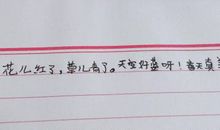 花儿红了，草儿青了。天空好蓝呀！春天真美